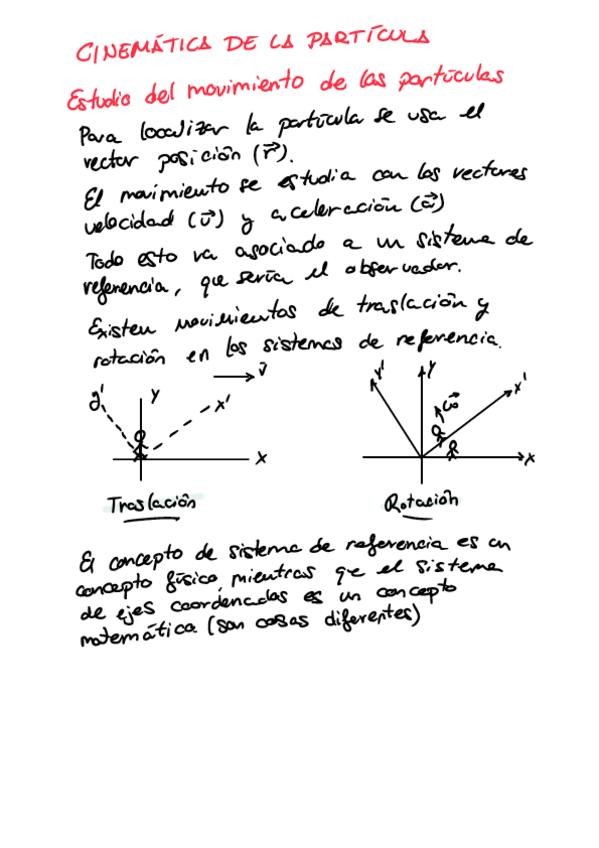 CINEMÁTICA DE LA PARTÍCULA
Estudio del movimiento de las partículas
Para localizar la partícula se usa el
vector posición (r⃗).
El movimiento se estudia con los vectores
velocidad (v⃗) y aceleración (a⃗)
Todo esto va asociado a un sistema de
referencia, que sería el observador.
Existen movimientos de traslación y
rotación en los sistemas de referencia.
v⃗
y' Y x'
X
Traslación
Y' Y x'
ω⃗
X
Rotación
El concepto de sistema de referencia es un
concepto físico, mientras que el sistema
de ejes coordenadas es un concepto
matemática (son cosas diferentes)